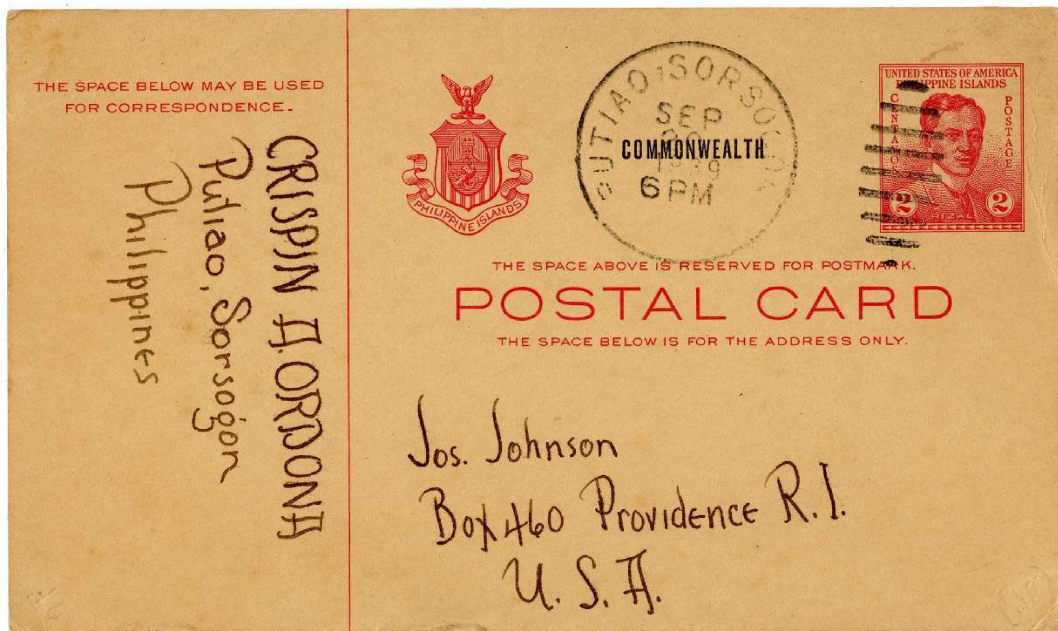 THE SPACE BELOW MAY BE USED
FOR CORRESPONDENCE.
CRISPIN A. ORDONA
Putiao, Sorsogon
Philippines
PHILIPPINE ISLANDS
PUTIAO, SORSOGON
SEP
1939
6 PM
COMMONWEALTH
UNITED STATES OF AMERICA
PHILIPPINE ISLANDS
CENTAVOS
POSTAGE
2 RIZAL 2
THE SPACE ABOVE IS RESERVED FOR POSTMARK.
POSTAL CARD
THE SPACE BELOW IS FOR THE ADDRESS ONLY.
Jos. Johnson
Box 460 Providence R.I.
U. S. A.